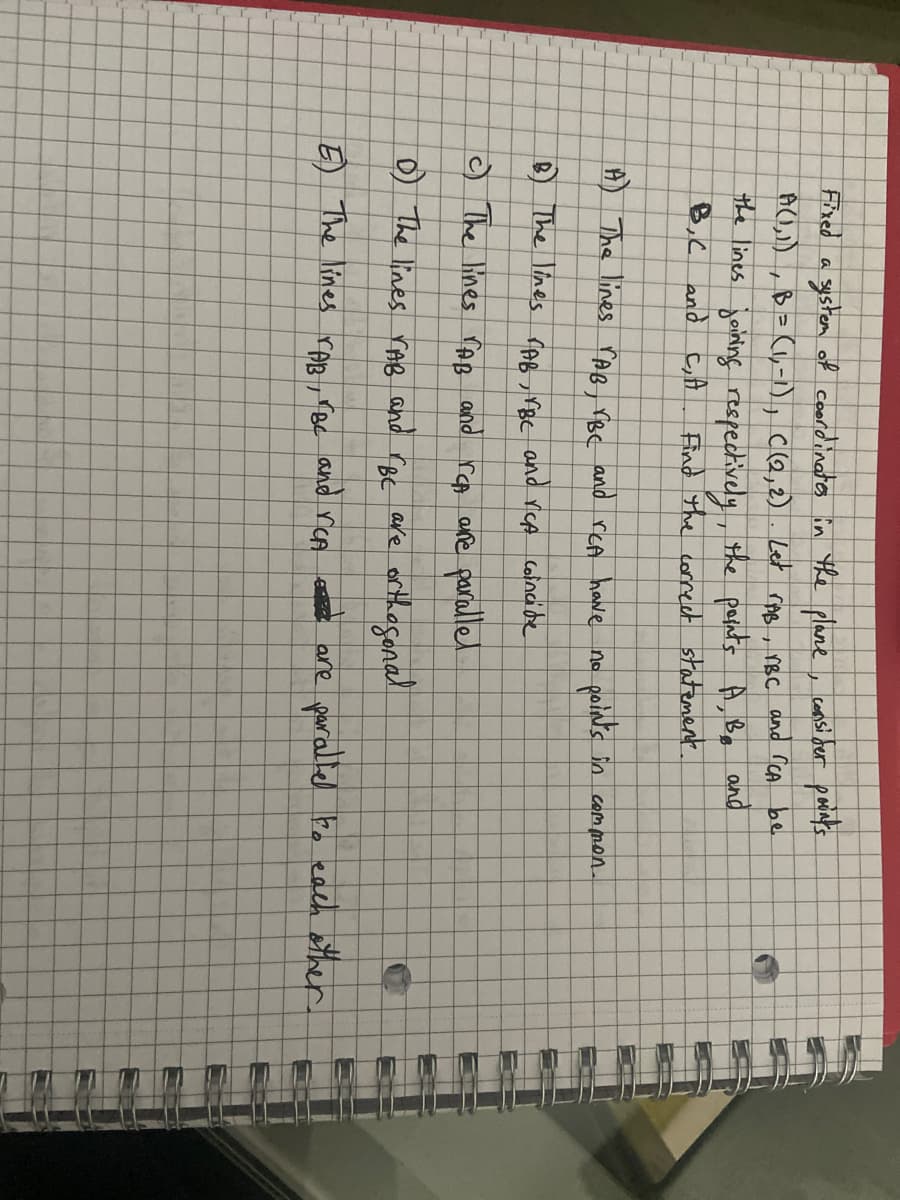 Fixed a system of coordinates in the plane, consider points
A(1,1), B=(1,-1), C(2,2). Let rAB, rBC and rCA be
the lines joining respectively, the points A, B and
B,C and C,A. Find the correct statement.
A) The lines rAB, rBC and rCA have no points in common.
B) The lines rAB, rBC and rCA coincide
C) The lines rAB and rCA are parallel
D) The lines rAB and rBC are orthogonal
E) The lines rAB, rBC and rCA are parallel to each other.